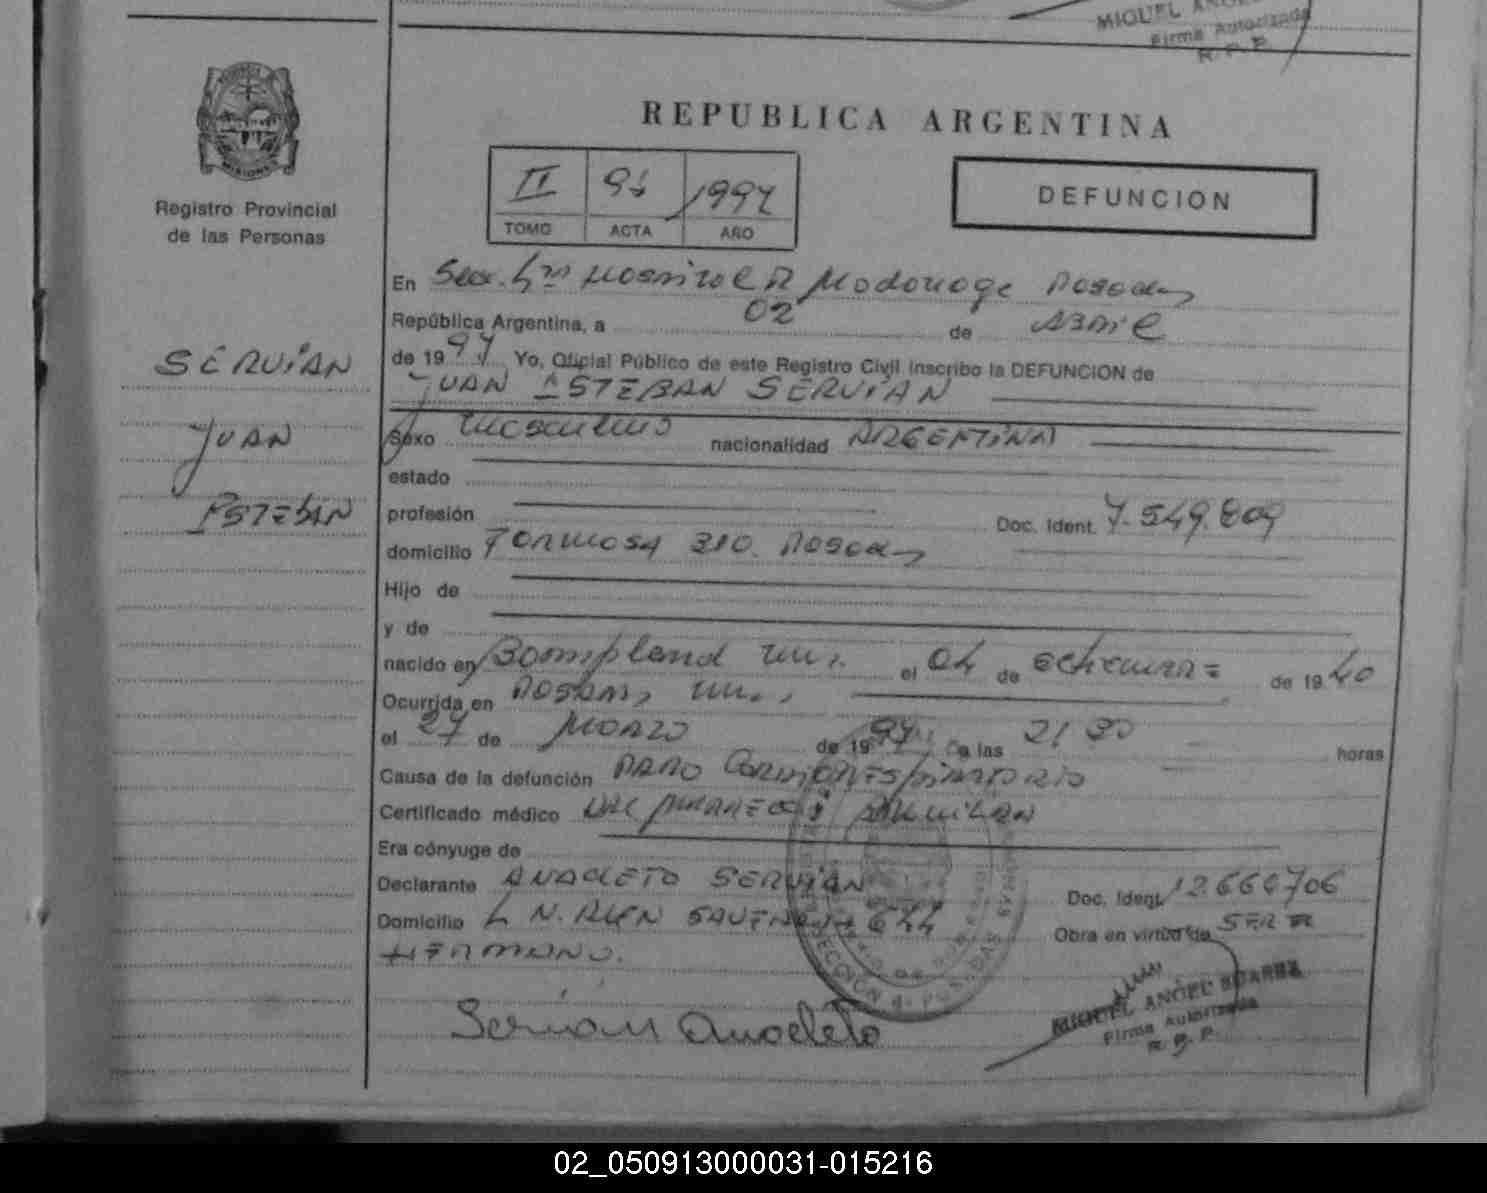 MIGUEL
Firma Autorizada
R. P. P.
PROVINCIA
MISIONES
Registro Provincial
de las Personas
REPUBLICA ARGENTINA
II 1994
TOMO ACTA AÑO
DEFUNCION
En Secc. 4ta Hospital R Madariaga Posadas
República Argentina, a 02 de Abril
de 1994 Yo, Oficial Público de este Registro Civil inscribo la DEFUNCION de
JUAN ESTEBAN SERVIAN
SERVIAN
JUAN
ESTEBAN
Sexo masculino nacionalidad ARGENTINA
estado
profesión Doc. Ident. 7.549.809
domicilio Formosa 310 Posadas
Hijo de
y de
nacido en Bompland Mnes. el 04 de de 1940
Ocurrida en Posadas, Mnes.
el 27 de Marzo de 1994 a las 21 30 horas
Causa de la defunción PARO CARDIORESPIRATORIO
Certificado médico
Era cónyuge de
Declarante ANACLETO SERVIAN Doc. Ident. 12660706
Domicilio L N. ALEN 644 Obra en virtud de SER
HERMANO.
SECCION 4a POSADAS
Servian Anacleto
MIGUEL ANGEL SUAREZ
Firma Autorizada
R. P. P.
02_050913000031-015216